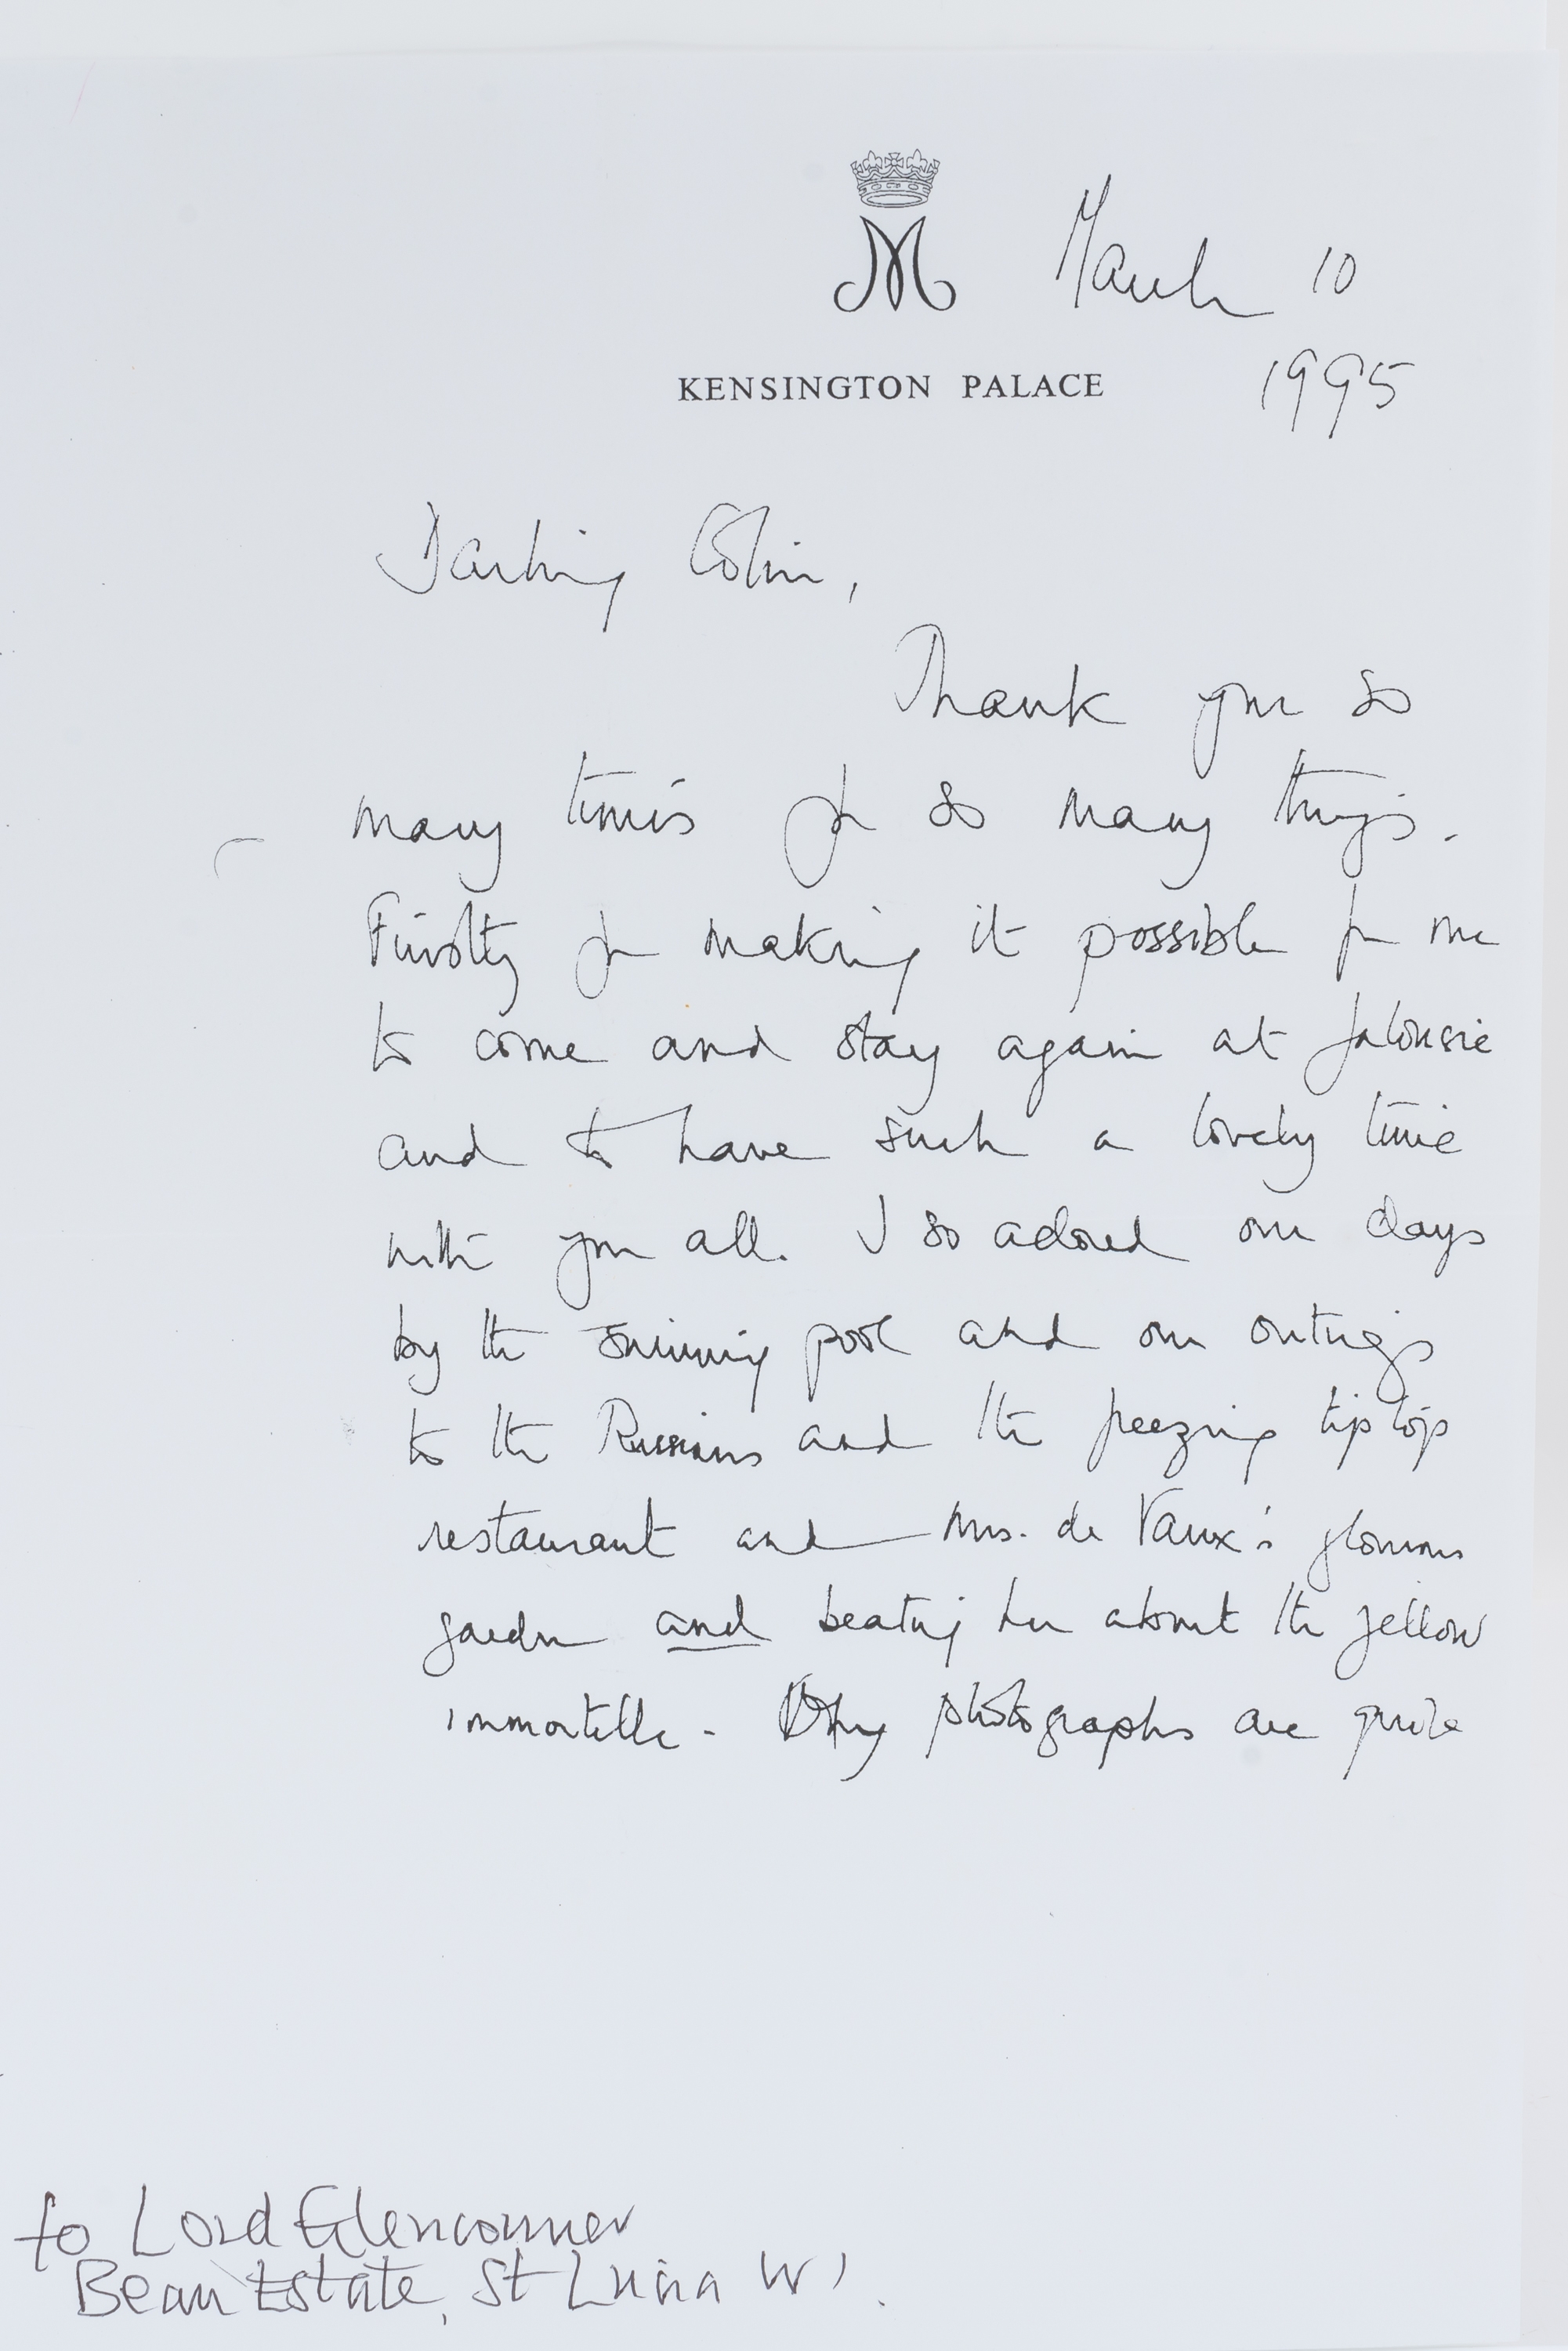 M
March 10
KENSINGTON PALACE
1995
Darling Colin,
Thank you so
many times for so many things.
Firstly for making it possible for me
to come and stay again at Jalousie
and to have such a lovely time
with you all. I so adored our days
by the swimming pool and our outings
to the Russians and the freezing tip top
restaurant and Mrs. de Vaux's glorious
garden and beating her about the yellow
immortelle. My photographs are quite
to Lord Glenconner
Beau Estate, St Lucia W I.